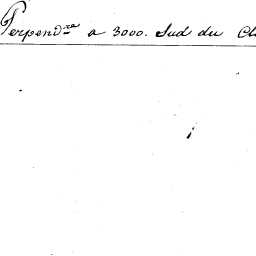 Perpend.re a 3000. Sud du